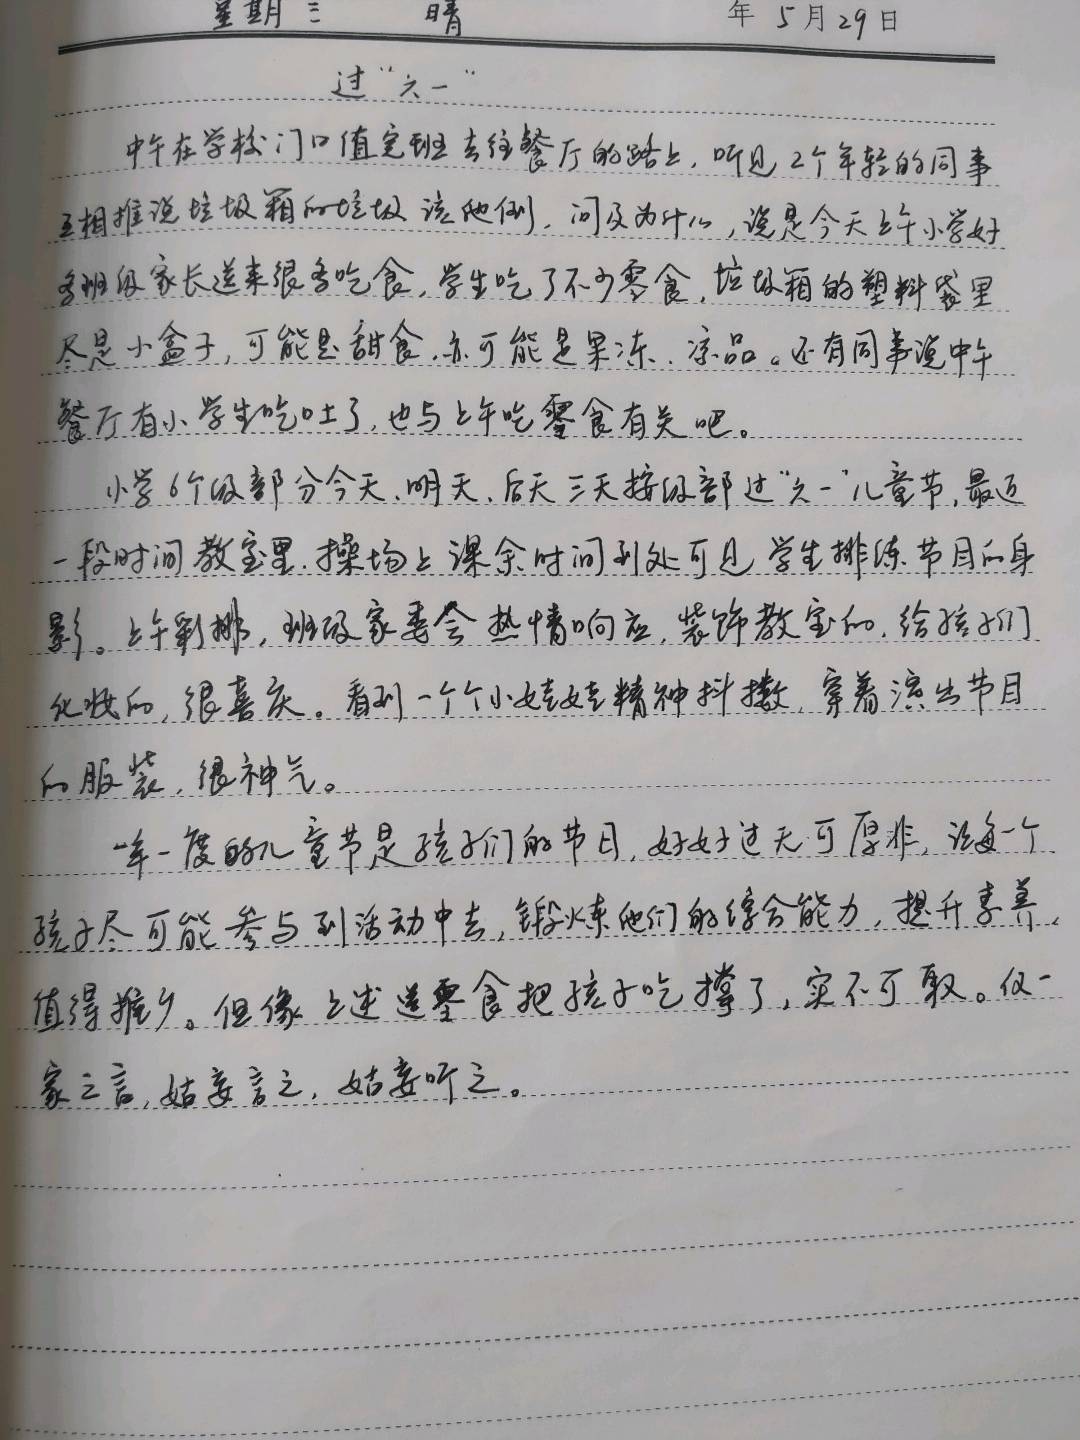 星期三 晴 年5月29日
过“六一”
中午在学校门口值完班去往餐厅的路上，听见2个年轻的同事
互相推说垃圾箱的垃圾该他倒，问及为什么，说是今天上午小学好
多班级家长送来很多吃食，学生吃了不少零食，垃圾箱的塑料袋里
尽是小盒子，可能是甜食，亦可能是果冻、凉品。还有同事说中午
餐厅有小学生吃吐了，也与上午吃零食有关吧。
小学6个级部分今天、明天、后天三天按级部过“六一”儿童节，最近
一段时间教室里、操场上课余时间到处可见学生排练节目的身
影。上午彩排，班级家委会热情响应，装饰教室的，给孩子们
化妆的，很喜庆。看到一个个小娃娃精神抖擞，穿着演出节目
的服装，很神气。
一年一度的儿童节是孩子们的节日，好好过无可厚非，让每一个
孩子尽可能参与到活动中去，锻炼他们的综合能力，提升素养，
值得推广。但像上述送零食把孩子吃撑了，实不可取。仅一
家之言，姑妄言之，姑妄听之。